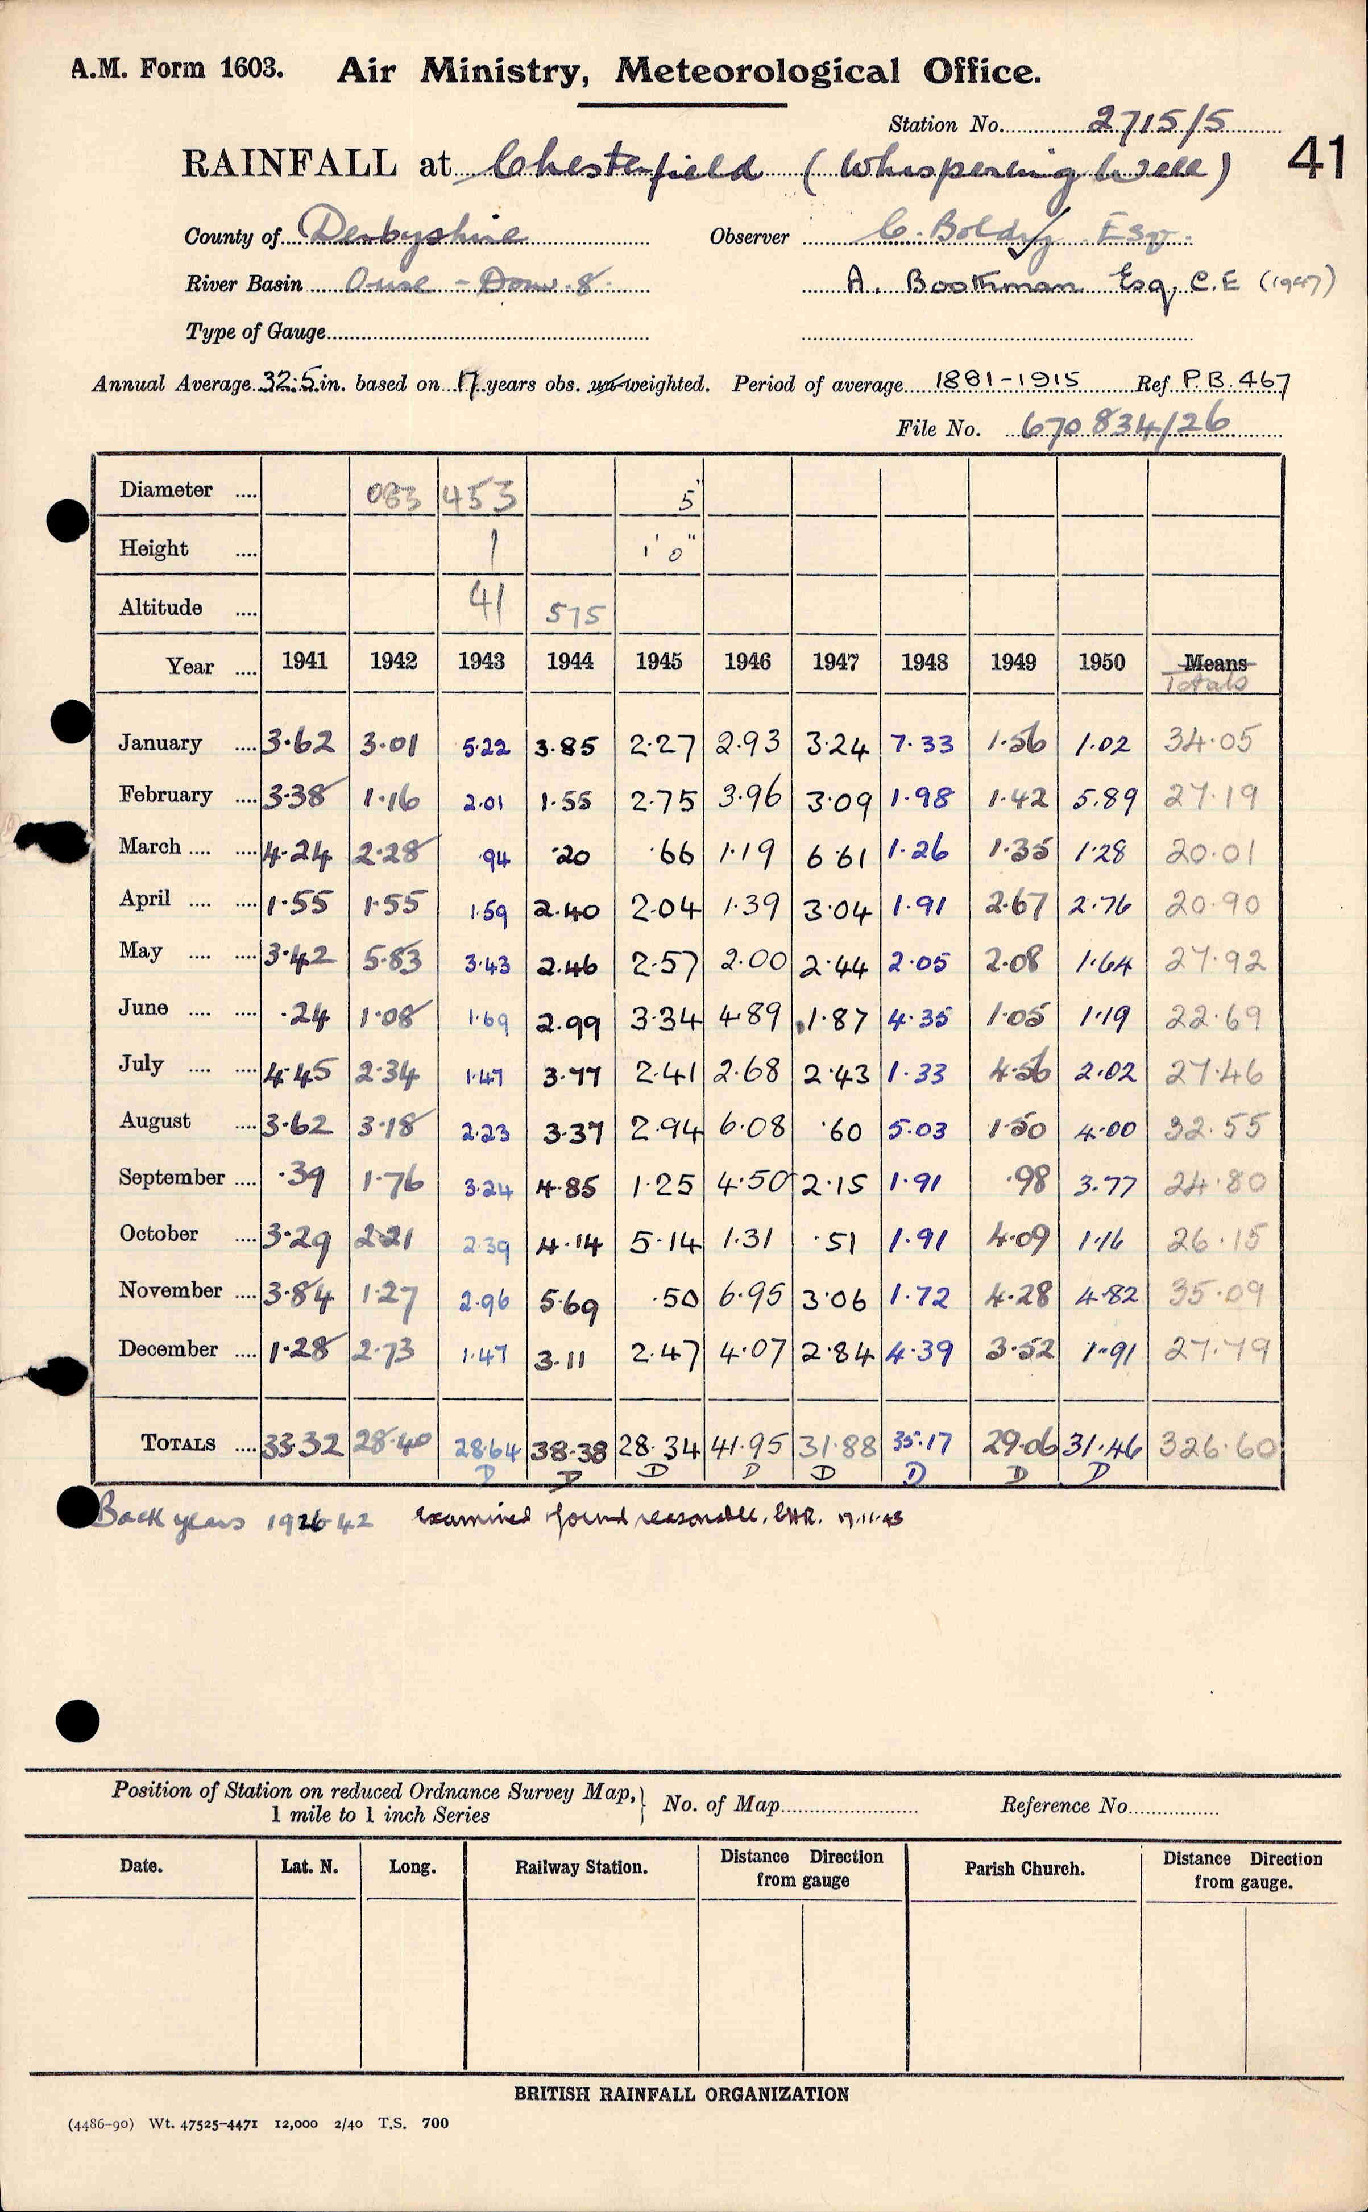 A.M. Form 1603. Air Ministry, Meteorological Office.
Station No. 2715/5
RAINFALL at Chesterfield (Whispering Well) 41
County of Derbyshire Observer C. Boldry Esq.
River Basin Ouse - Don 8. A. Bookman Esq, C.E (1947)
Type of Gauge
Annual Average 32.5 in. based on 17 years obs. un-weighted. Period of average 1881-1915 Ref P.B. 467
File No. 670834/26
Diameter .... 083 453 5"
Height .... 1 1' 0"
Altitude .... 41 575
Year .... 1941 1942 1943 1944 1945 1946 1947 1948 1949 1950 Means
Totals
January .... 3.62 3.01 5.22 3.85 2.27 2.93 3.24 7.33 1.56 1.02 34.05
February .... 3.38 1.16 2.01 1.55 2.75 3.96 3.09 1.98 1.42 5.89 27.19
March .... .... 4.24 2.28 .94 .20 .66 1.19 6.61 1.26 1.35 1.28 20.01
April .... .... 1.55 1.55 1.59 2.40 2.04 1.39 3.04 1.91 2.67 2.76 20.90
May .... .... 3.42 5.83 3.43 2.46 2.57 2.00 2.44 2.05 2.08 1.64 27.92
June .... .... .24 1.08 1.69 2.99 3.34 4.89 1.87 4.35 1.05 1.19 22.69
July .... .... 4.45 2.34 1.47 3.77 2.41 2.68 2.43 1.33 4.56 2.02 27.46
August .... 3.62 3.18 2.23 3.37 2.94 6.08 .60 5.03 1.50 4.00 32.55
September .... .39 1.76 3.24 4.85 1.25 4.50 2.15 1.91 .98 3.77 24.80
October .... 3.29 2.21 2.39 4.14 5.14 1.31 .51 1.91 4.09 1.16 26.15
November .... 3.84 1.27 2.96 5.69 .50 6.95 3.06 1.72 4.28 4.82 35.09
December .... 1.28 2.73 1.47 3.11 2.47 4.07 2.84 4.39 3.52 1.91 27.79
TOTALS .... 33.32 28.40 28.64 38.38 28.34 41.95 31.88 35.17 29.06 31.46 326.60
D D D D D D D D
Back years 1926-42 examined found reasonable. 17.11.43
Position of Station on reduced Ordnance Survey Map, 1 mile to 1 inch Series } No. of Map Reference No.
Date. Lat. N. Long. Railway Station. Distance Direction from gauge Parish Church. Distance Direction from gauge.
BRITISH RAINFALL ORGANIZATION
(4486-90) Wt. 47525-4471 12,000 2/40 T.S. 700